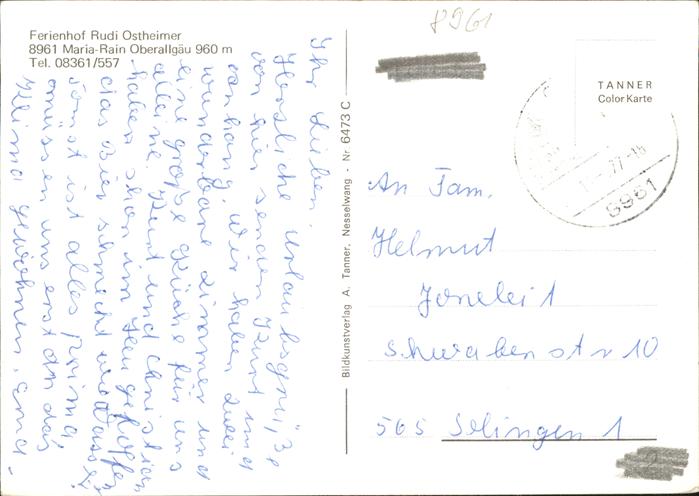 Ferienhof Rudi Ostheimer
8961 Maria-Rain Oberallgäu 960 m
Tel. 08361/557
Ihr Lieben.
Herzliche Urlaubsgrüße
von hier senden Kurt und
Wir haben zwei
wunderbare Zimmer und
eine große Küche für uns
alleine. Kurt und Christian
haben schon im Heu geholfen
das Bier schmeckt und
sonst ist alles prima
müssen uns erst an das
Klima gewöhnen.
Bildkunstverlag A. Tanner, Nesselwang - Nr 6473 C
8961
TANNER
Color Karte
77-18
8961
An Fam.
Helmut
Joneleit
Schwabenstr 10
565 Solingen 1